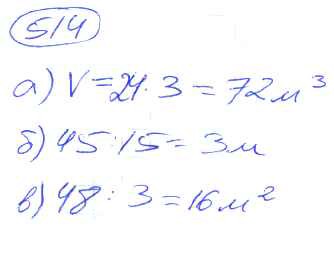 514
а) V=24·3=72м³
б) 45:15=3м
в) 48:3=16м²